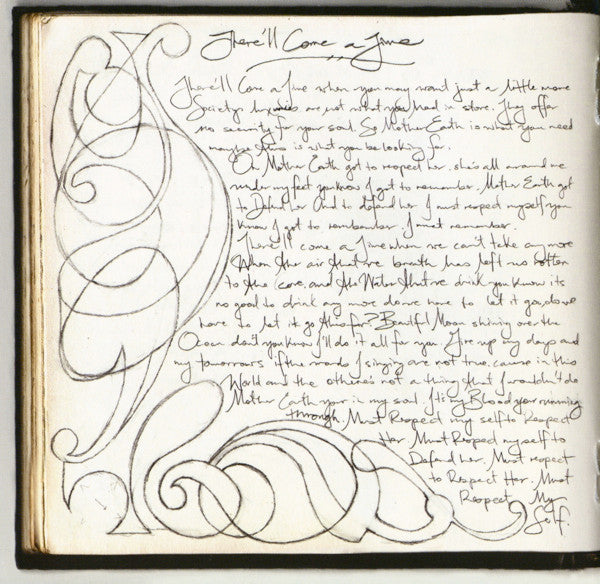 There'll Come a Time
There'll Come a Time when you may want just a little more
Society's luxuries are not what you had in store. They offer
no security for your soul. So Mother Earth is what you need
maybe this is what you be looking for.
Oh Mother Earth got to respect her. she's all around me
under my feet you know I got to remember. Mother Earth got
to Defend her And to defend her I must respect myself you
know I got to remember I must remember.
There'll come a Time when we can't take any more
When the air that we breath has left us rotten
to the core, and the Water that we drink you know its
no good to drink any more do we have to let it go, do we
have to let it go this far? Beautiful Moon shining over the
Ocean don't you know I'll do it all for you Give up my days and
my tomorrows if the words I singing are not true. cause in this
World and the other's not a thing that I wouldn't do
Mother Earth your in my soul Its my Blood your running
through. Must Respect my self to Respect
Her Must Respect myself to
Defend her. Must respect
to Respect Her. Must
Respect My
Self.